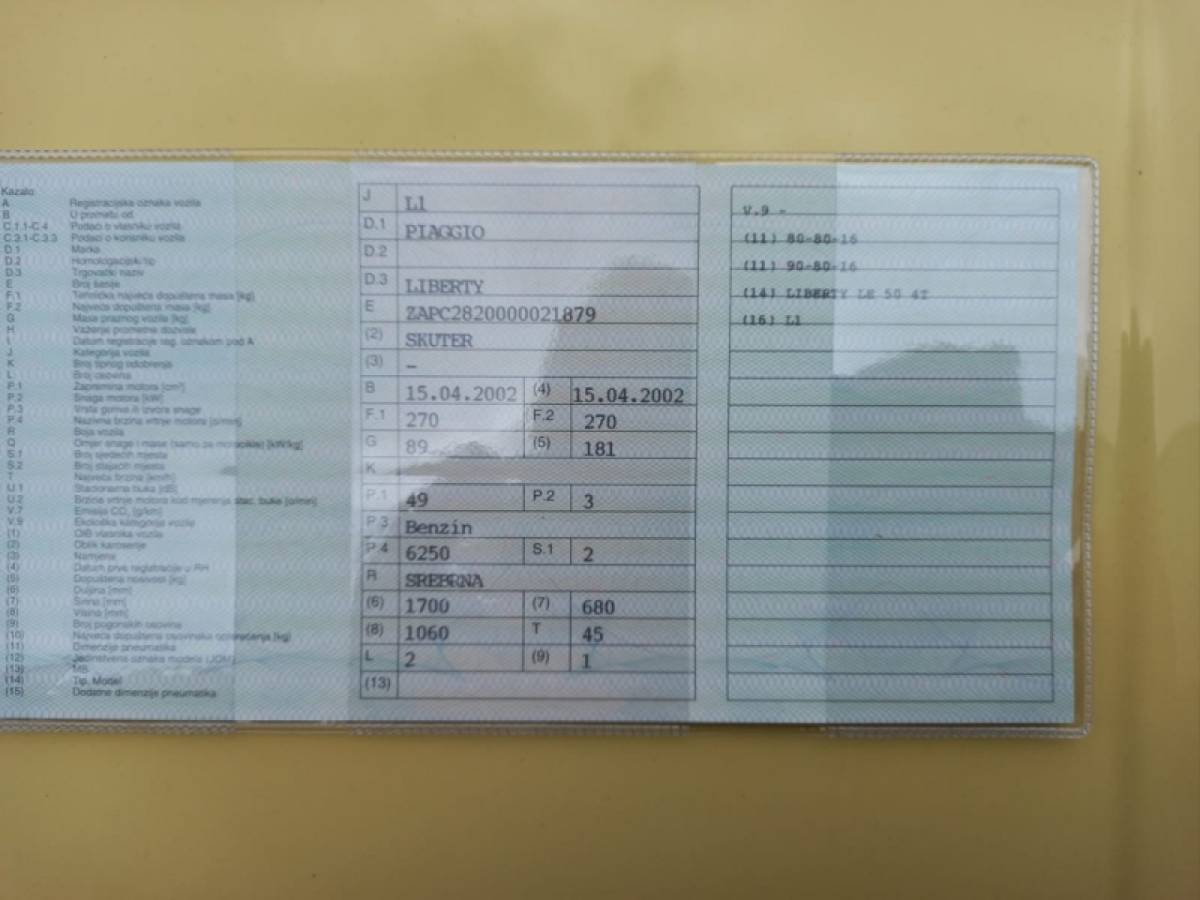 Kazalo
A Registracijska oznaka vozila
B U prometu od
C.1.1-C.4 Podaci o vlasniku vozila
C.3.1-C.3.3 Podaci o korisniku vozila
D.1 Marka
D.2 Homologacijski tip
D.3 Trgovački naziv
E Broj šasije
F.1 Tehnička najveća dopuštena masa [kg]
F.2 Najveća dopuštena masa [kg]
G Masa praznog vozila [kg]
H Važenje prometne dozvole
I Datum registracije reg. oznakom pod A
J Kategorija vozila
K Broj tipnog odobrenja
L Broj osovina
P.1 Zapremina motora [cm³]
P.2 Snaga motora [kW]
P.3 Vrsta goriva ili izvora snage
P.4 Nazivna brzina vrtnje motora [o/min]
R Boja vozila
Q Omjer snage i mase (samo za motocikle) [kW/kg]
S.1 Broj sjedećih mjesta
S.2 Broj stajaćih mjesta
T Najveća brzina [km/h]
U.1 Stacionarna buka [dB]
U.2 Brzina vrtnje motora kod mjerenja stac. buke [o/min]
V.7 Emisija CO₂ [g/km]
V.9 Ekološka kategorija vozila
(1) OIB vlasnika vozila
(2) Oblik karoserije
(3) Namjena
(4) Datum prve registracije u RH
(5) Dopuštena nosivost [kg]
(6) Duljina [mm]
(7) Širina [mm]
(8) Visina [mm]
(9) Broj pogonskih osovina
(10) Najveća dopuštena osovinska opterećenja [kg]
(11) Dimenzije pneumatika
(12) Jedinstvena oznaka modela (JOM)
(13) MB
(14) Tip, Model
(15) Dodatne dimenzije pneumatika
J L1
D.1 PIAGGIO
D.2
D.3 LIBERTY
E ZAPC2820000021879
(2) SKUTER
(3) –
B 15.04.2002 (4) 15.04.2002
F.1 270 F.2 270
G 89 (5) 181
K
P.1 49 P.2 3
P.3 Benzin
P.4 6250 S.1 2
R SREBRNA
(6) 1700 (7) 680
(8) 1060 T 45
L 2 (9) 1
(13)
V.9 -
(11) 80-80-16
(11) 90-80-16
(14) LIBERTY LE 50 4T
(16) L1